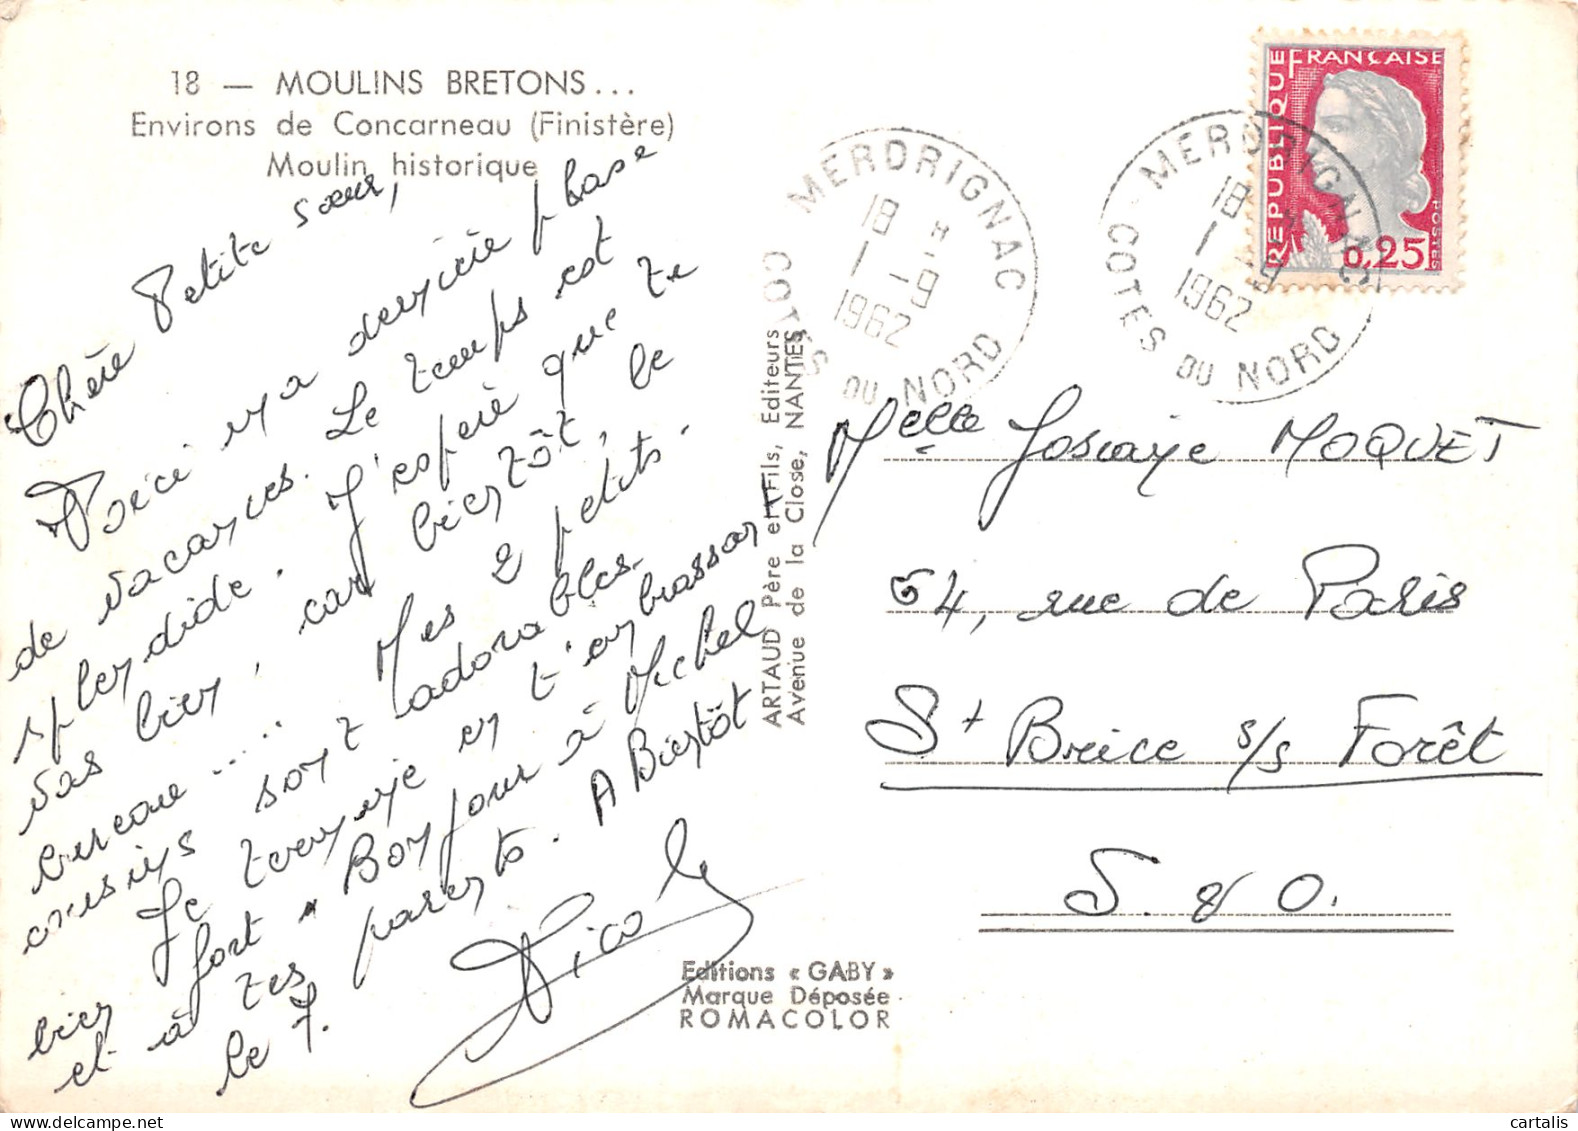 18 — MOULINS BRETONS...
Environs de Concarneau (Finistère)
Moulin historique
Chère Petite sœur,
Voici ma dernière phase
de vacances. Le temps est
splendide. J'espère que te
vas bien, car bientôt, le
bureau..... Mes 2 petits
cousins sont adorables.
Je t'envoie en t'embrassant
bien fort. Bonjour à Michel
et à tes parents. A Bientôt
le 7.
Nicole
ARTAUD Père et Fils, Editeurs
Avenue de la Close, NANTES
Editions « GABY »
Marque Déposée
ROMACOLOR
MERDRIGNAC
18 H
1 -9
1962
COTES DU NORD
MERDRIGNAC
18 H
1 -9
1962
COTES DU NORD
REPUBLIQUE FRANÇAISE
POSTES
0,25
Melle Josiane MOQUET
54, rue de Paris
St Brice s/s Forêt
S. & O.
cartalis